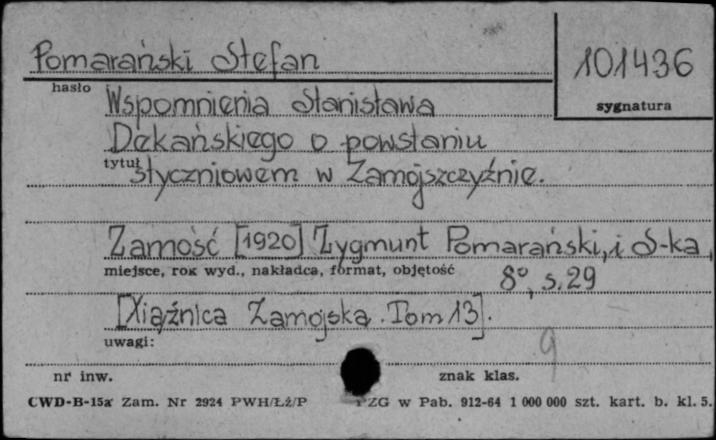 Pomarański Stefan
101436
hasło
sygnatura
Wspomnienia Stanisława
Dekańskiego o powstaniu
tytuł
styczniowem w Zamojszczyźnie.
Zamość [1920] Zygmunt Pomarański, i S-ka,
miejsce, rok wyd., nakładca, format, objętość
8°, s. 29
[Xiąźnica Zamojska. Tom 13].
uwagi:
9
nr inw.
znak klas.
CWD-B-15a Zam. Nr 2924 PWH/Łź/P
PZG w Pab. 912-64 1 000 000 szt. kart. b. kl. 5.